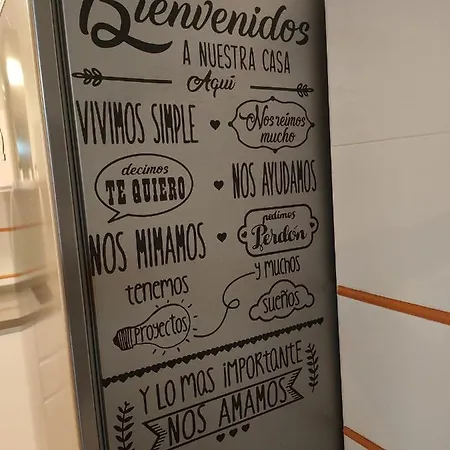 Bienvenidos
A NUESTRA CASA
Aquí
VIVIMOS SIMPLE
Nos reímos
mucho
decimos
TE QUIERO
NOS AYUDAMOS
NOS MIMAMOS
pedimos
Perdón
tenemos
proyectos
y MUCHOS
sueños
Y LO MAS iMPORTANTE
NOS AMAMOS